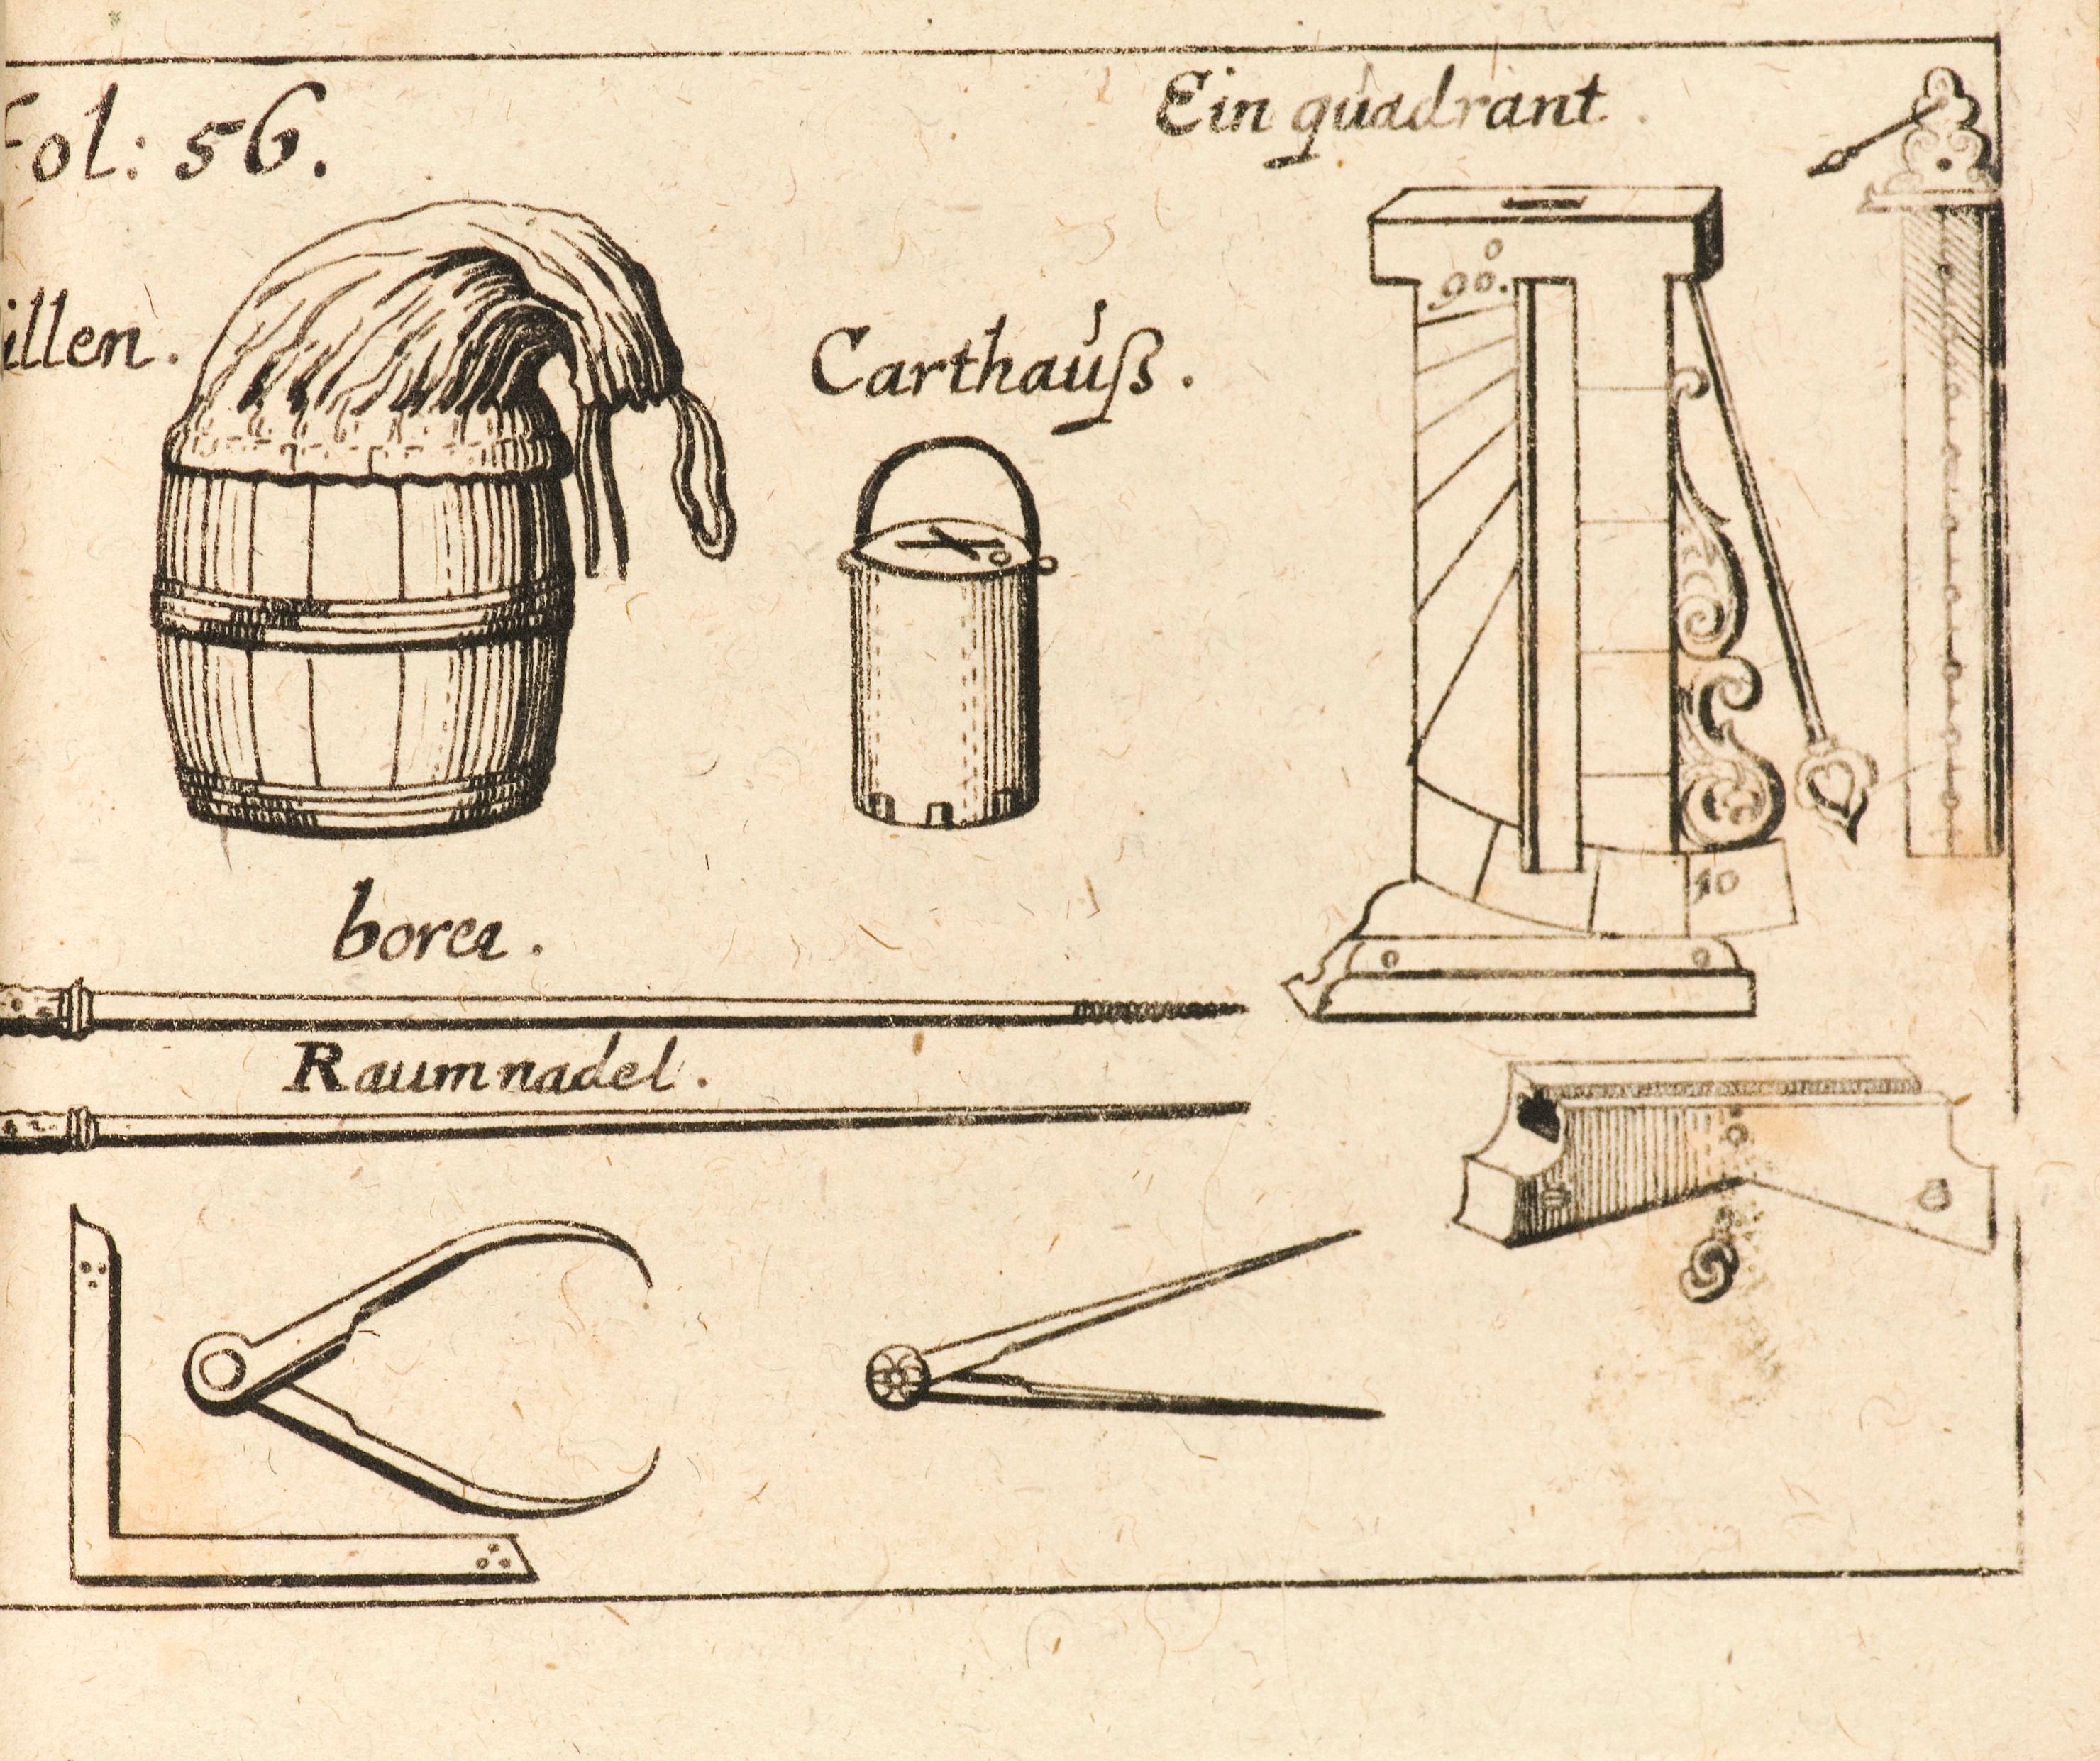 Fol: 56.
Ein quadrant.
illen.
Carthauß.
90.
10
borer.
Raumnadel.